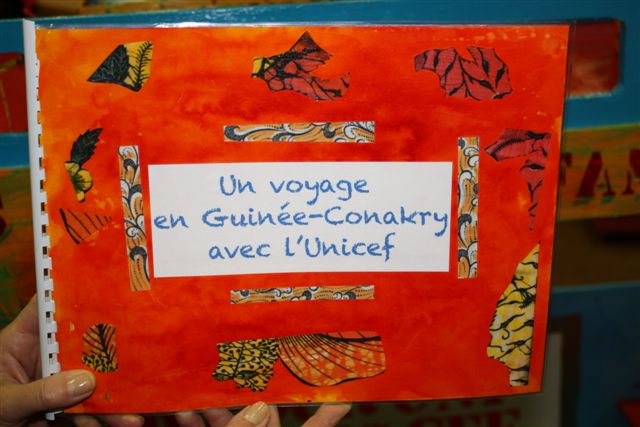 Un voyage
en Guinée-Conakry
avec l'Unicef